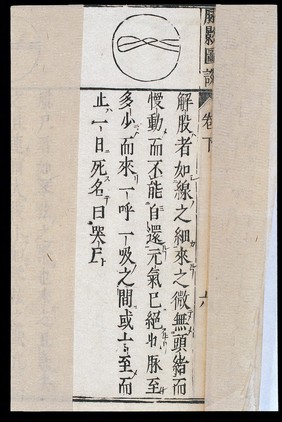 脉影圖說 卷下 六
解股者如線之細來之微無頭緒而
慢動而不能自還元氣已絕也脉至
多少而來一呼一吸之間或至而
止一日死名曰哭尸